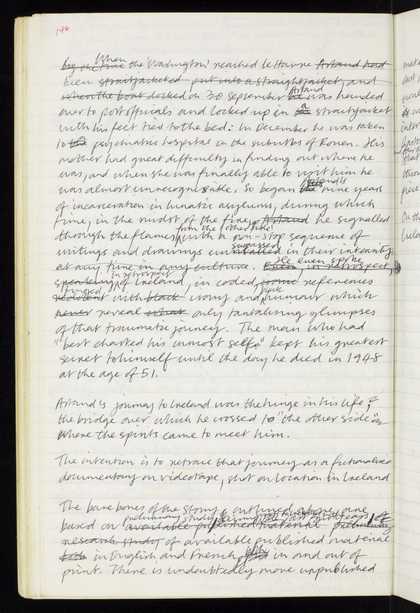 When
by the time the 'Washington' reached Le Havre Artaud had
been straitjacketed put into a straightjacket, and
Artaud
when the boat docked on 30 September he was handed
over to port officials and locked up in a straitjacket
with his feet tied to the bed. In December he was taken
to a psychiatric hospital in the suburbs of Rouen. His
mother had great difficulty in finding out where he
was, and when she was finally able to visit him he
Artaud's
was almost unrecognisable. So began nine years
of incarceration in lunatic asylums, during which
time, in the midst of the fire, Artaud he signalled
from the other side
through the flames, with a non-stop sequence of
surpassed
writings and drawings in their intensity
He even spoke
at any time in any culture. Even, in retrospect,
in retrospect
speaking of Ireland, in coded, ironic references
tinged
with black irony and humour which
never reveal what only tantalising glimpses
of that traumatic journey. The man who had
"best charted his inmost self" kept his greatest
secret to himself until the day he died in 1948
at the age of 51.
Artaud's journey to Ireland was the hinge in his life,
the bridge over which he crossed to "the other side"
where the spirits came to meet him.
The intention is to retrace that journey as a fictionalised
documentary on videotape, shot on location in Ireland
The bare bones of the story outlined above are
preliminary study
based on available published material
research study of available published material
both in English and French, in and out of
print. There is undoubtedly more unpublished